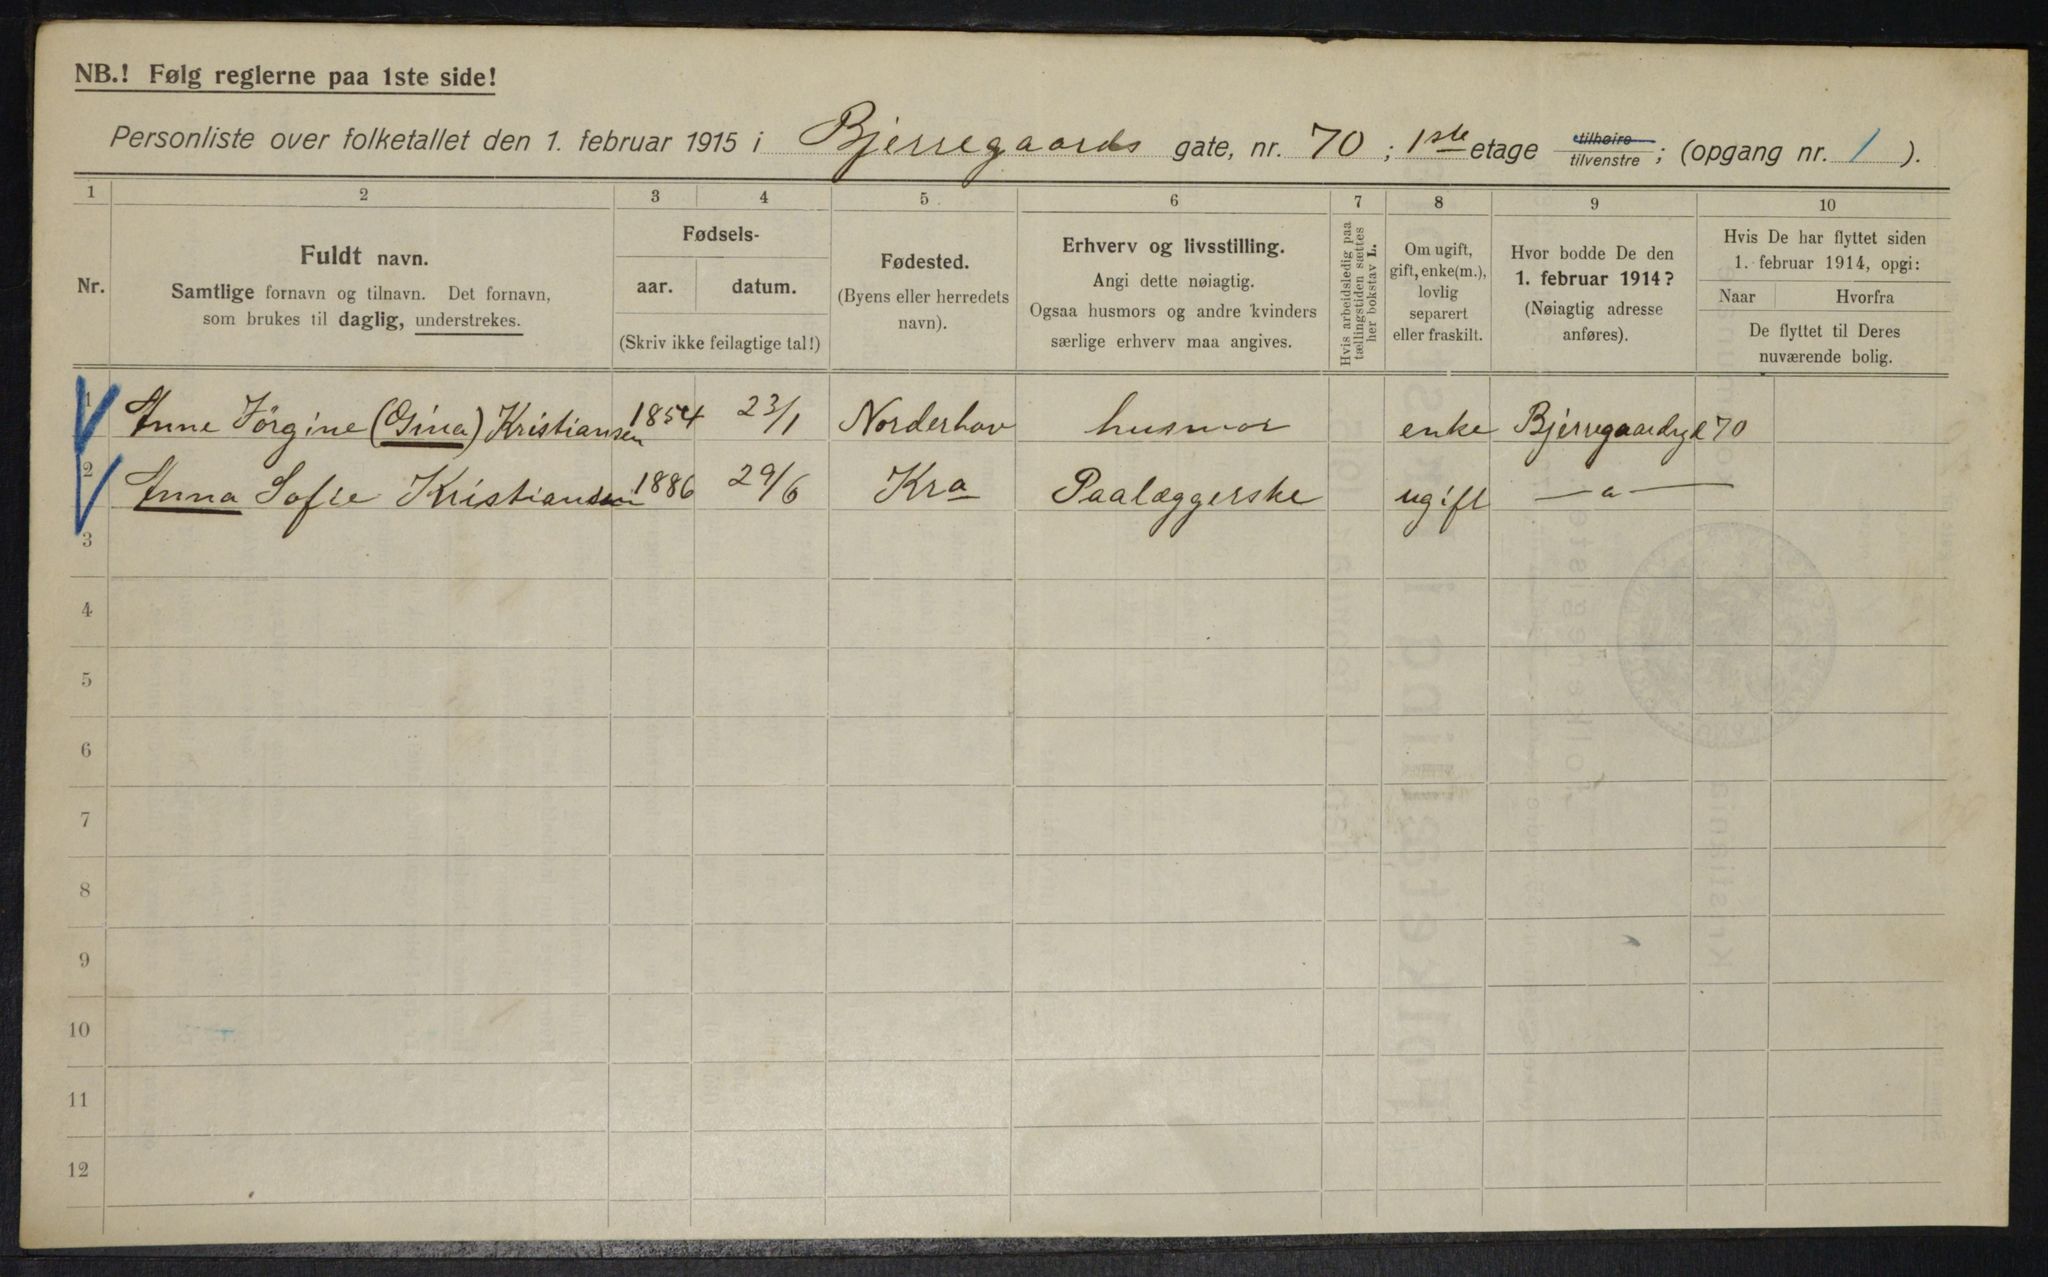 NB.! Følg reglerne paa 1ste side!
Personliste over folketallet den 1. februar 1915 i Bjerregaards gate, nr. 70 ; 1ste etage tilhøire tilvenstre ; (opgang nr. 1 ).
1 2 3 4 5 6 7 8 9 10
Nr.
Fuldt navn.
Samtlige fornavn og tilnavn. Det fornavn,
som brukes til daglig, understrekes.
Fødsels-
aar. datum.
(Skriv ikke feilagtige tal!)
Fødested.
(Byens eller herredets
navn).
Erhverv og livsstilling.
Angi dette nøiagtig.
Ogsaa husmors og andre kvinders
særlige erhverv maa angives.
Hvis arbeidsledig paa
tællingstiden sættes
her bokstav L.
Om ugift,
gift, enke(m.),
lovlig
separert
eller fraskilt.
Hvor bodde De den
1. februar 1914?
(Nøiagtig adresse
anføres).
Hvis De har flyttet siden
1. februar 1914, opgi:
Naar Hvorfra
De flyttet til Deres
nuværende bolig.
1 Anne Jörgine (Gina) Kristiansen 1854 23/1 Norderhov husmor enke Bjerregaardsgd 70
2 Anna Sofie Kristiansen 1886 29/6 Kra Paalæggerske ugift — a —
3
4
5
6
7
8
9
10
11
12